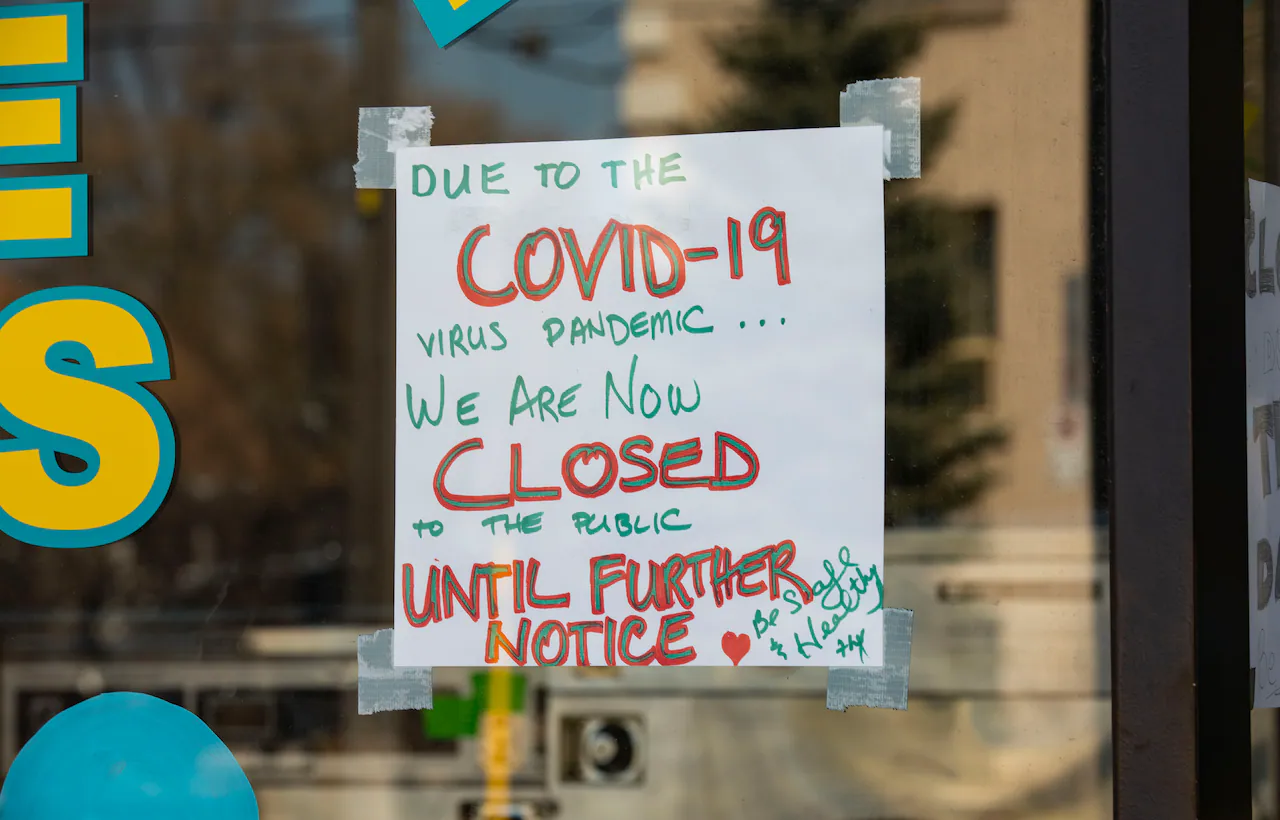 DUE TO THE
COVID-19
VIRUS PANDEMIC...
WE ARE NOW
CLOSED
TO THE PUBLIC
UNTIL FURTHER
NOTICE
Be Safe
& Healthy
thx
S